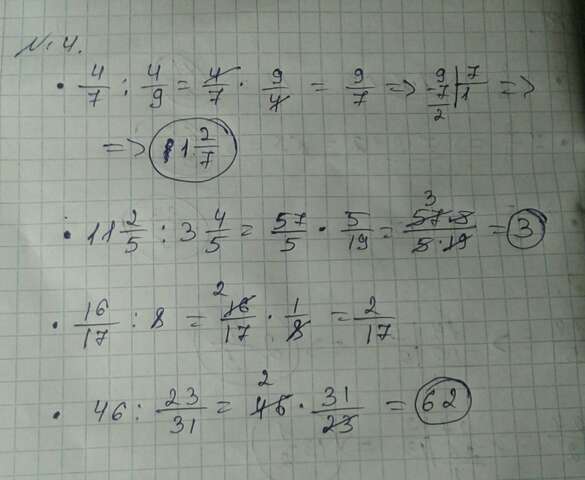 № 4.
• 4/7 : 4/9 = 4/7 · 9/4 = 9/7 => 9 |7 -7 1 2 =>
=> 1 2/7
• 11 2/5 : 3 4/5 = 57/5 · 5/19 = 3 57·5/5·19 = 3
• 16/17 : 8 = 2 16/17 · 1/8 = 2/17
• 46 : 23/31 = 2 46 · 31/23 = 62